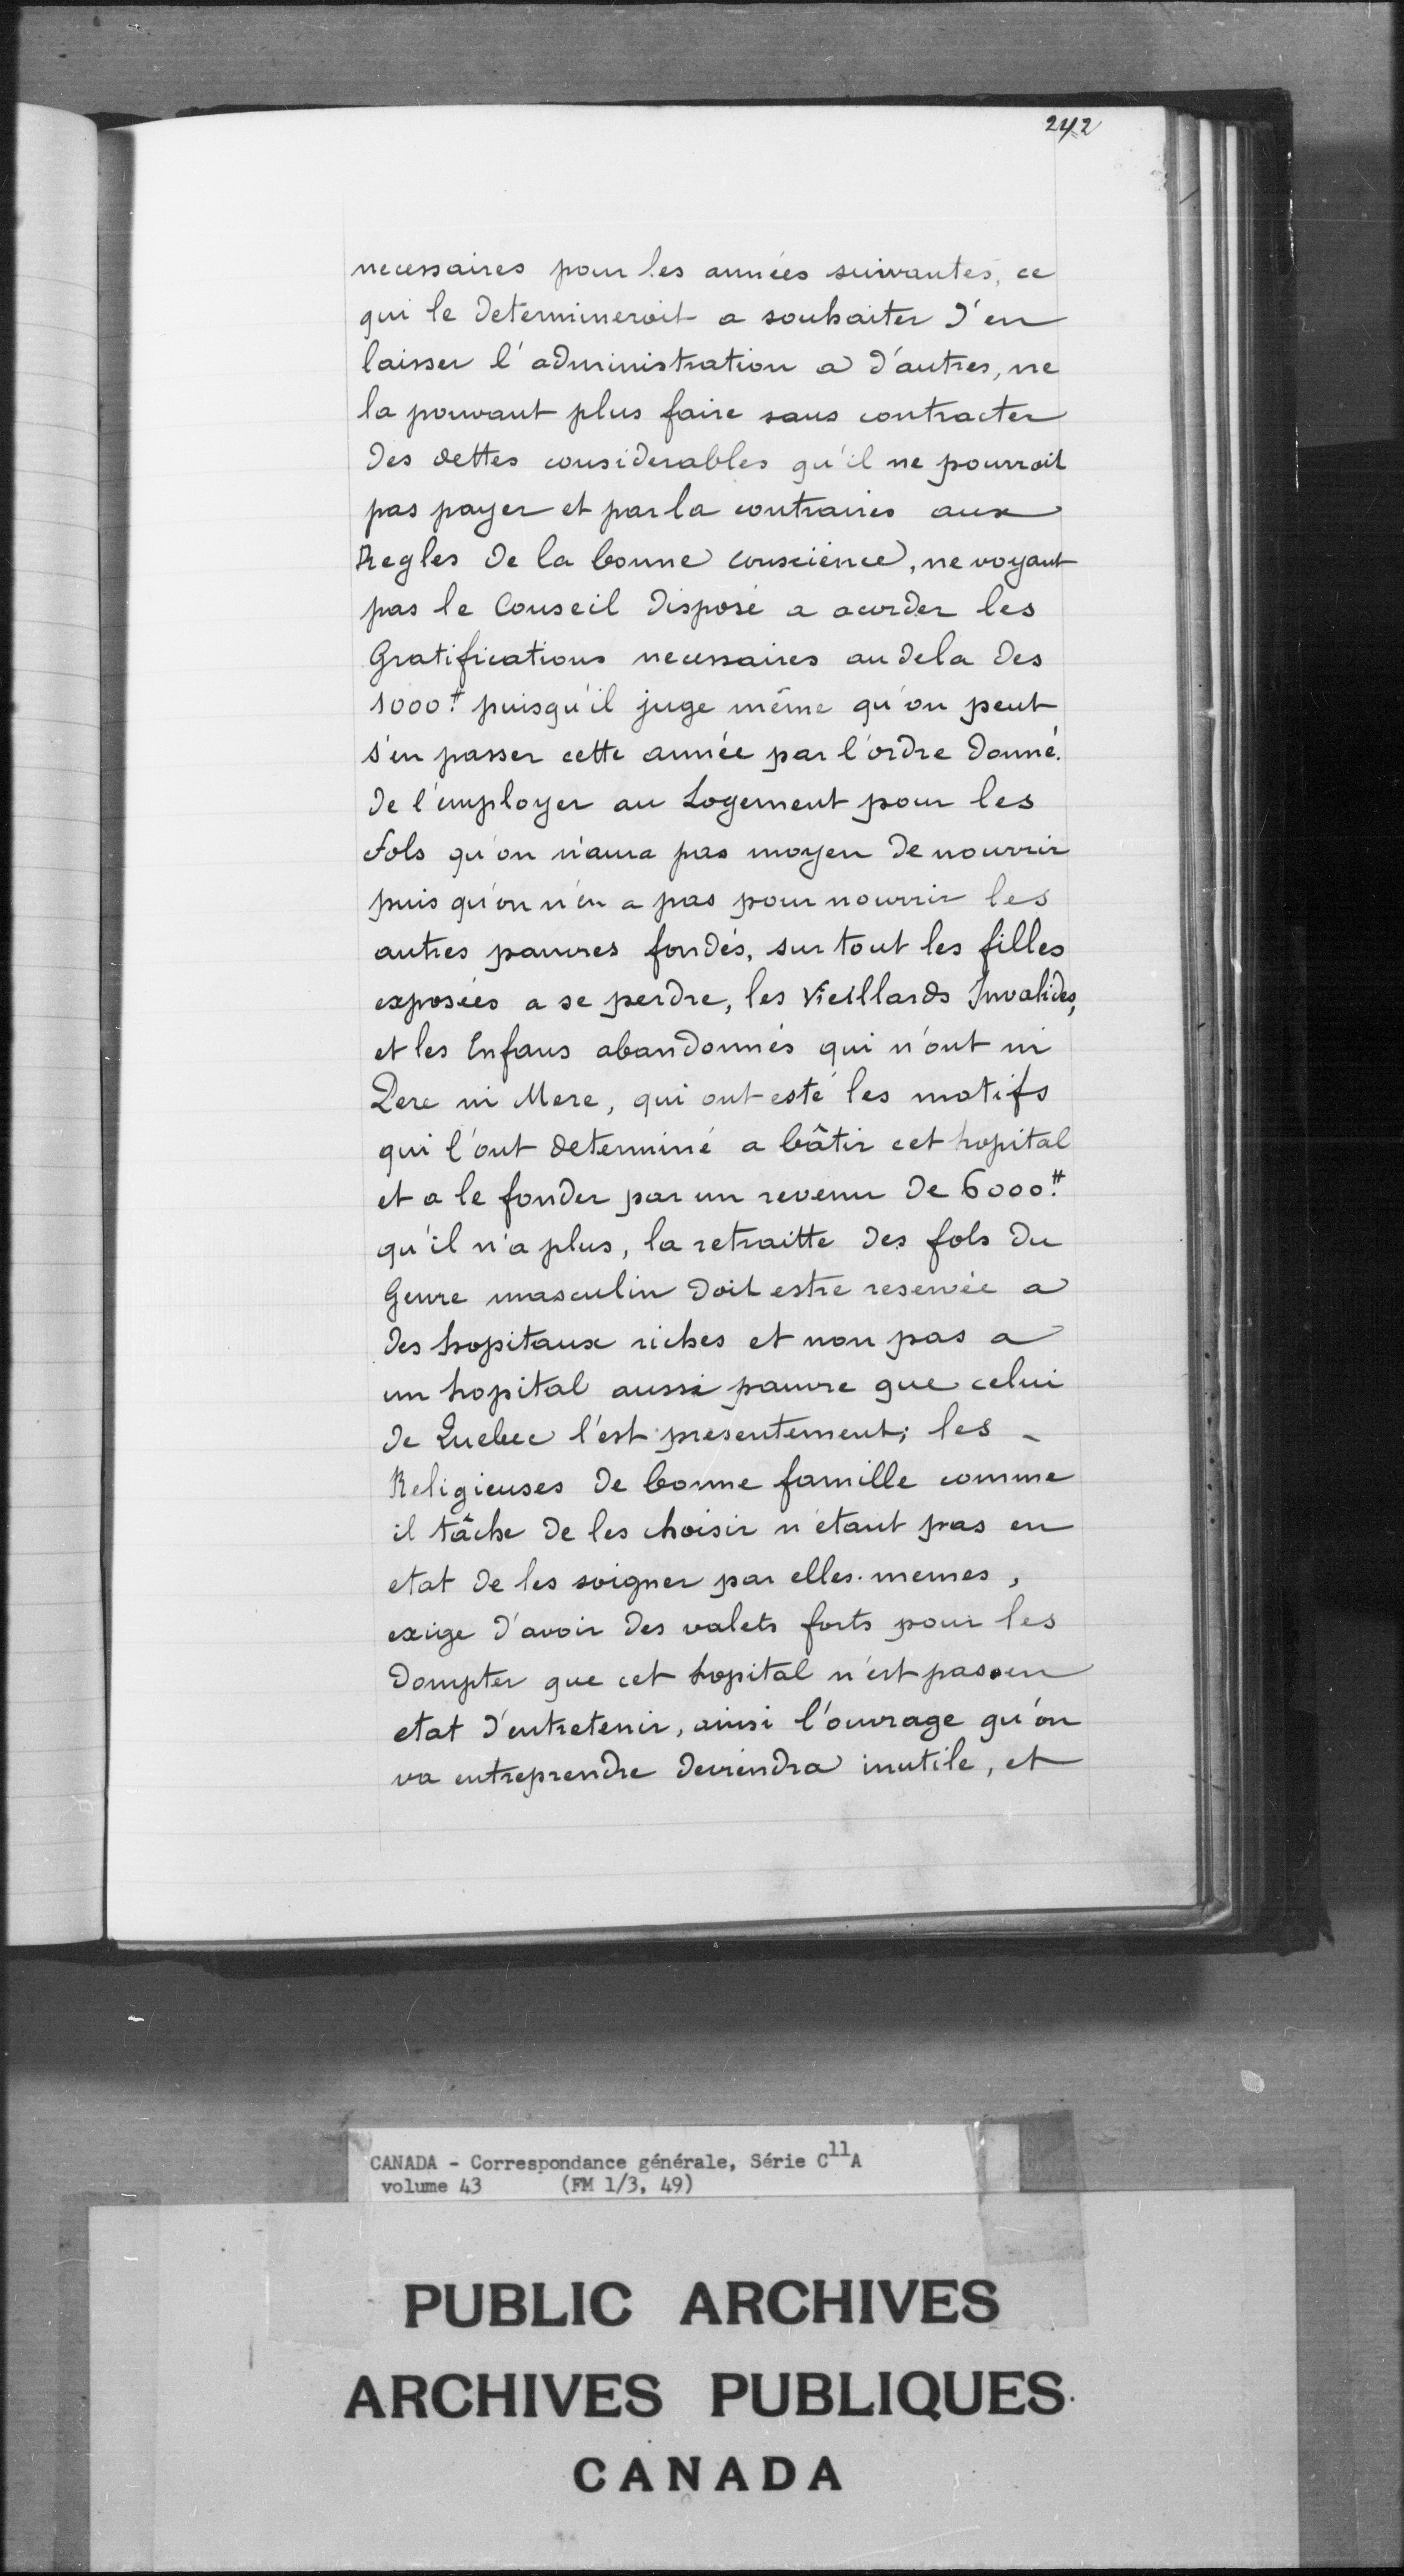 242
necessaires pour les années suivantes, ce
qui le determineroit a souhaiter d'en
laisser l'administration a d'autres, ne
la pouvant plus faire sans contracter
des dettes considerables qu'il ne pourroit
pas payer et par la contraires aux
Regles de la bonne conscience, ne voyant
pas le Conseil disposé a acorder les
Gratifications necessaires au dela des
1000.# puisqu'il juge même qu'on peut
s'en passer cette année par l'ordre donné.
de l'employer au Logement pour les
fols qu'on n'aura pas moyen de nourrir
puis qu'on n'en a pas pour nourrir les
autres pauvres fondés, sur tout les filles
exposées a se perdre, les Vieillards Invalides,
et les Enfans abandonnés qui n'ont ni
Pere ni Mere, qui ont esté les motifs
qui l'ont determiné a bâtir cet hopital
et a le fonder par un revenu de 6000.#
qu'il n'a plus, la retraitte des fols du
Genre masculin doit estre reservée a
des hopitaux riches et non pas a
un hopital aussi pauvre que celui
de Quebec l'est presentement; les -
Religieuses de bonne famille comme
il tâche de les choisir n'étant pas en
etat de les soigner par elles-memes,
exige d'avoir des valets forts pour les
dompter que cet hopital n'est pas en
etat d'entretenir, ainsi l'ouvrage qu'on
va entreprendre deviendra inutile, et
CANADA - Correspondance générale, Série C11A
volume 43 (FM 1/3, 49)
PUBLIC ARCHIVES
ARCHIVES PUBLIQUES
CANADA